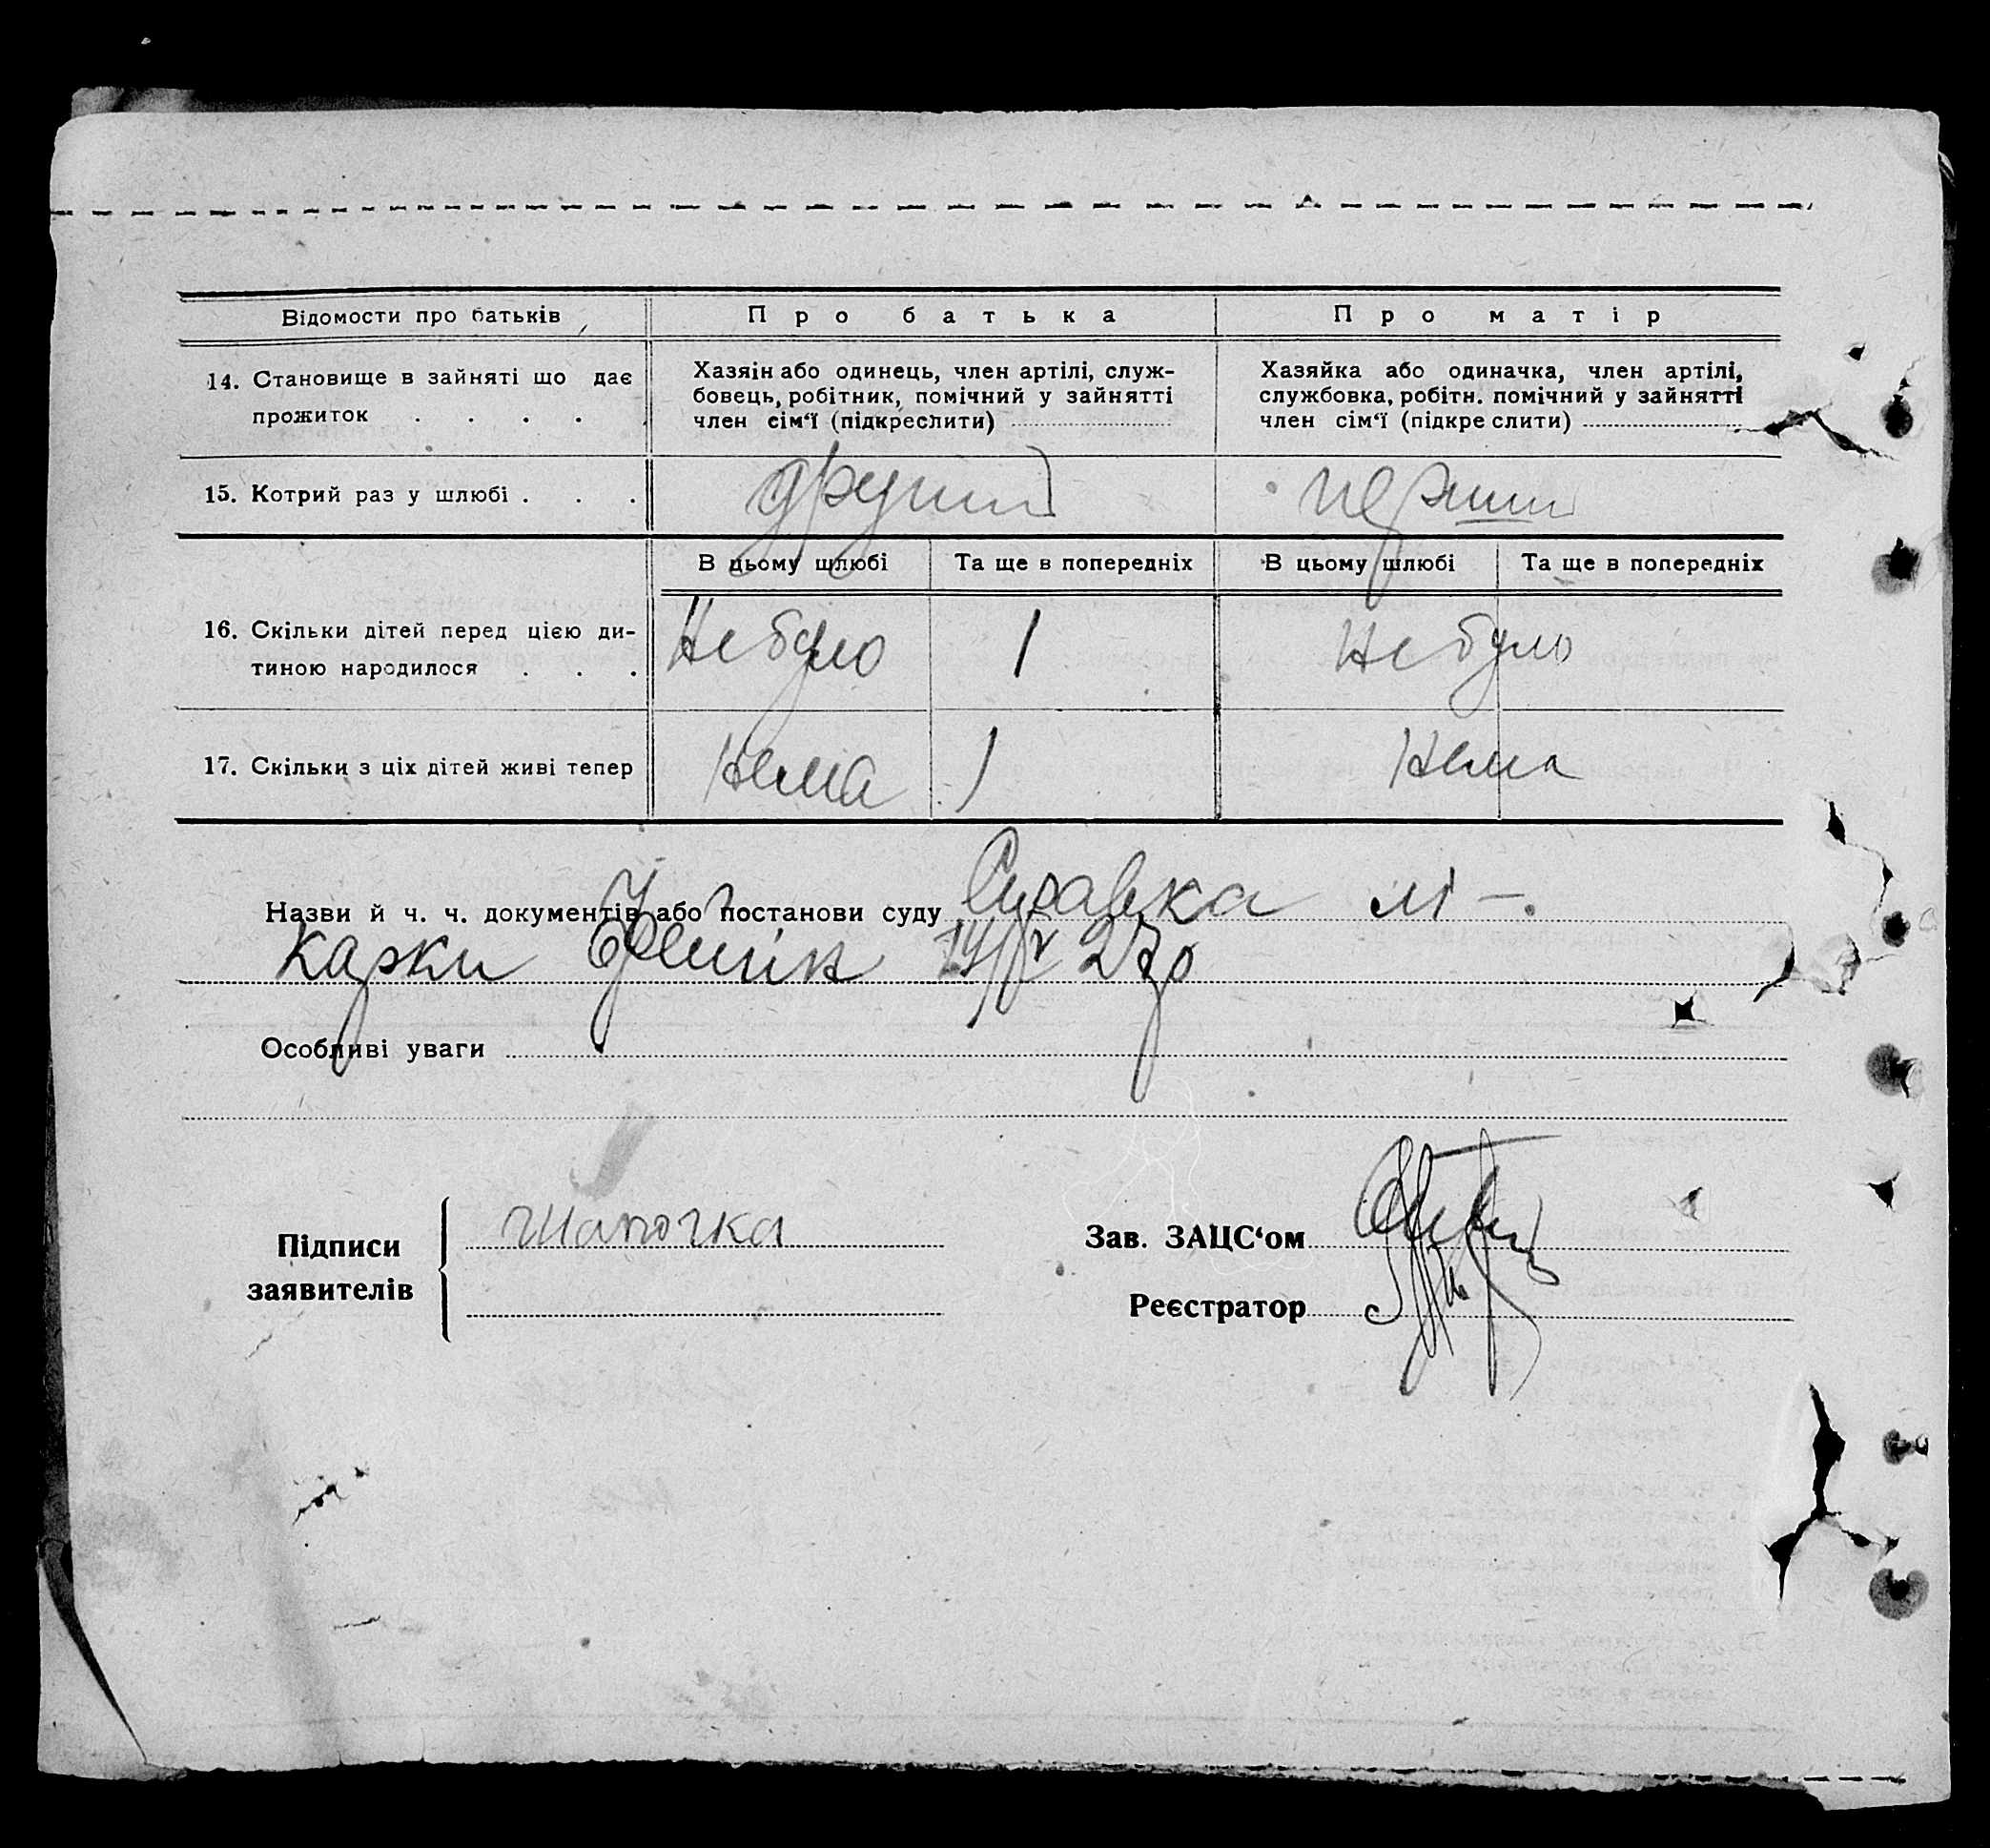 Відомости про батьків
Про батька
Про матір
14. Становище в зайняті що дає
прожиток . . . .
Хазяін або одинець, член артілі, служ-
бовець, робітник, помічний у зайнятті
член сім‘ї (підкреслити)
Хазяйка або одиначка, член артілі,
службовка, робітн. помічний у зайнятті
член сім‘ї (підкре слити)
15. Котрий раз у шлюбі . . .
другий
перший
В цьому шлюбі
Та ще в попередніх
В цьому шлюбі
Та ще в попередніх
16. Скільки дітей перед цією ди-
тиною народилося . . .
Не було
1
Не було
17. Скільки з ціх дітей живі тепер
Нема
1
Нема
Назви й ч. ч. документів або постанови суду Справка лі-
карки 27р
Особливі уваги
Підписи
заявителів
Шапочка
Зав. ЗАЦС‘ом
Реєстратор